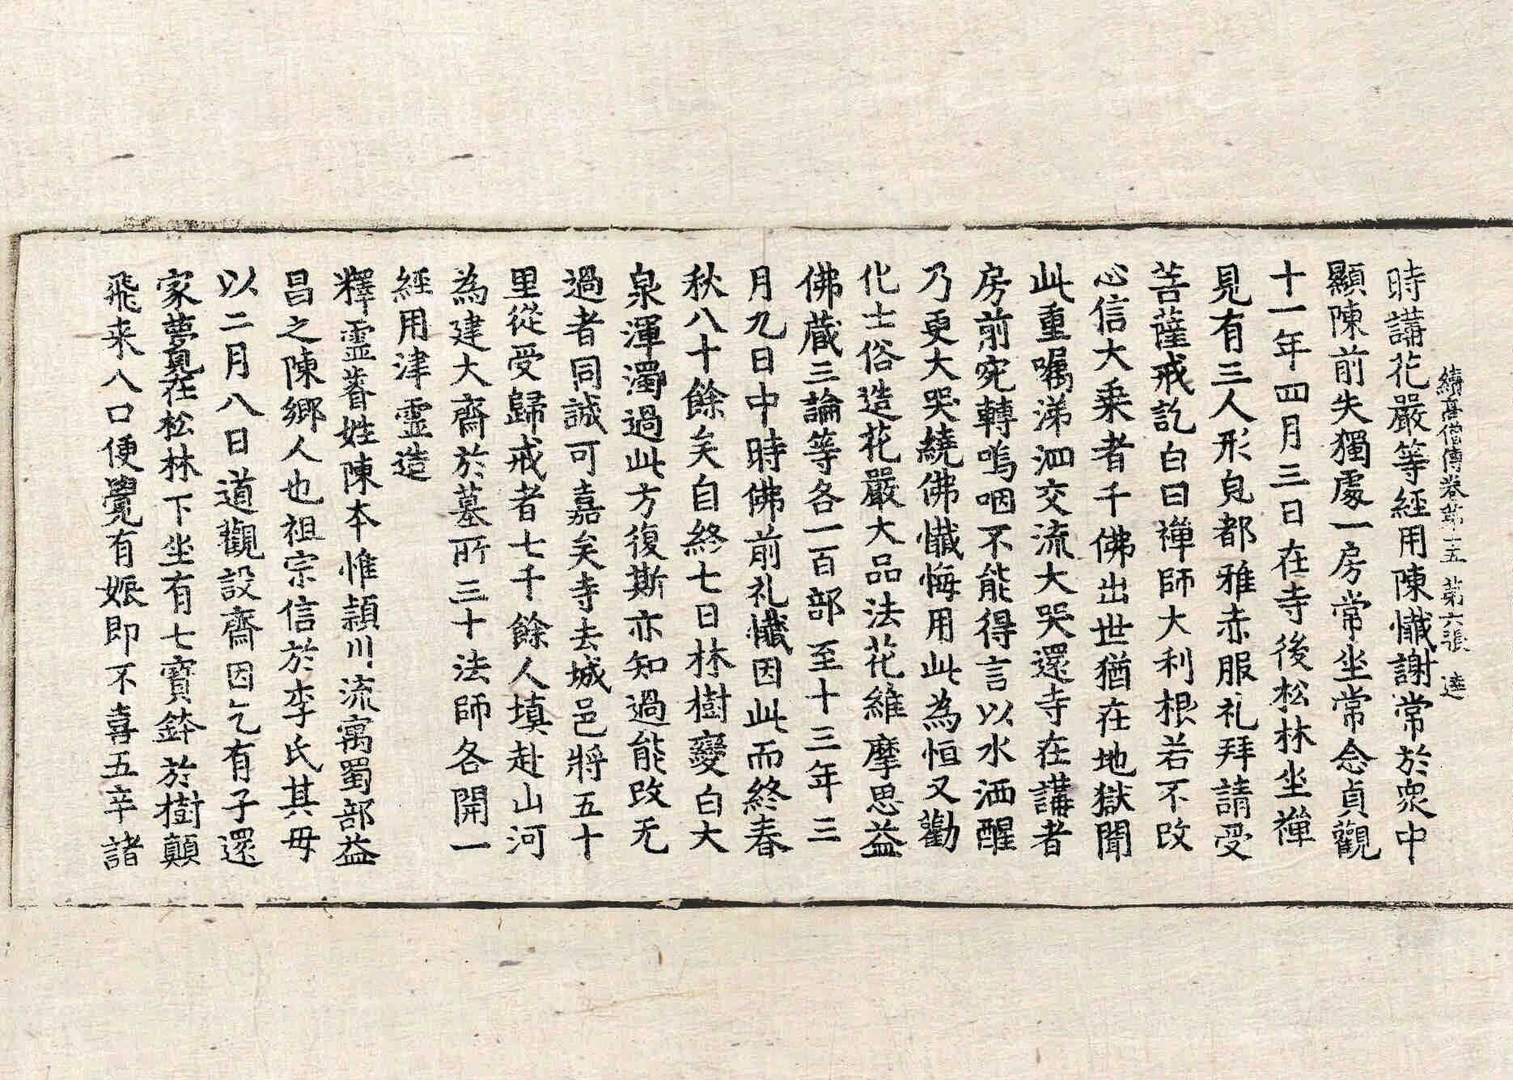 時講花嚴等經用陳懺謝常於衆中
續高僧傳卷第十五 第六張 逵
顯陳前失獨處一房常坐常念貞觀
十一年四月三日在寺後松林坐禪
見有三人形皃都雅赤服礼拜請受
菩薩戒訖白曰禪師大利根若不改
心信大乗者千佛出世猶在地獄聞
此重囑涕泗交流大哭還寺在講者
房前宛轉嗚咽不能得言以水洒醒
乃更大哭繞佛懺悔用此為恒又勸
化士俗造花嚴大品法花維摩思益
佛藏三論等各一百部至十三年三
月九日中時佛前礼懺因此而終春
秋八十餘矣自終七日林樹變白大
泉渾濁過此方復斯亦知過能改无
過者同誠可嘉矣寺去城邑將五十
里從受歸戒者七千餘人填赴山河
為建大齋於墓所三十法師各開一
經用津靈造
釋靈睿姓陳本惟潁川流寓蜀部益
昌之陳鄉人也祖宗信於李氏其毋
以二月八日道觀設齋因乞有子還
家夢見在松林下坐有七寶鉢於樹顛
飛来入口便覺有娠即不喜五辛諸